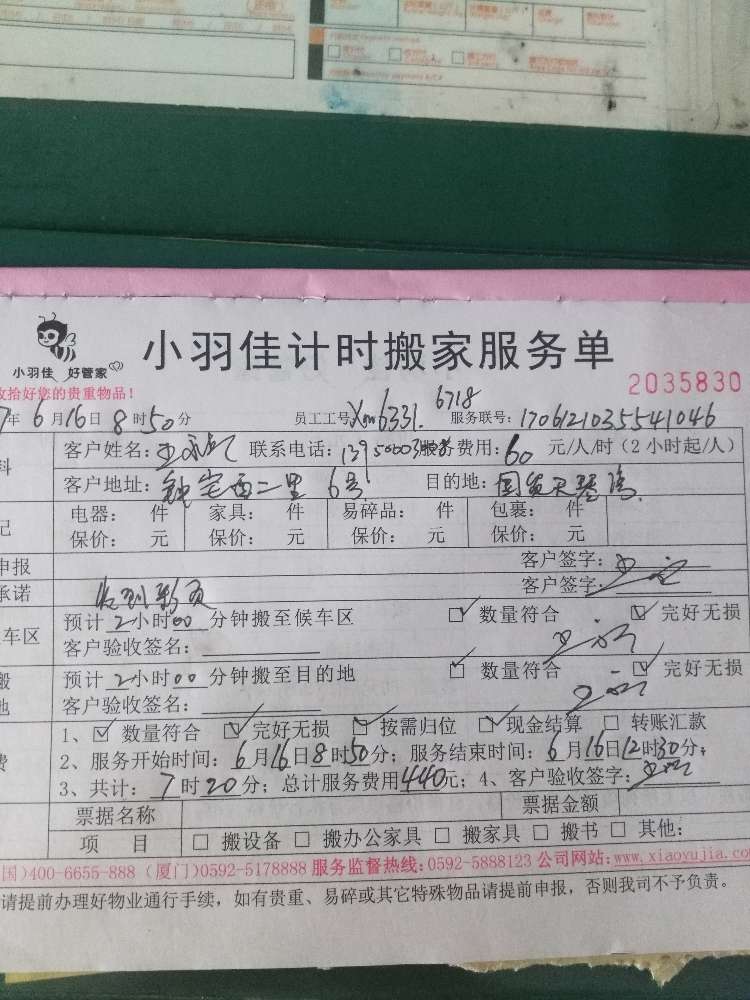 小羽佳计时搬家服务单
小羽佳 好管家
2035830
收拾好您的贵重物品!
7年6月16日8时50分 员工工号 Xm6331. 6718 服务联号: 1706121035541046
料 客户姓名: 联系电话: 服务费用: 60 元/人/时(2小时起/人)
客户地址: 钱宅西二里 6号 目的地:
电器: 件 家具: 件 易碎品: 件 包裹: 件
记 保价: 元 保价: 元 保价: 元 保价: 元
申报 客户签字:
承诺 收到彩页 客户签字:
车区 预计2小时00分钟搬至候车区 ☑ 数量符合 ☑ 完好无损
客户验收签名:
搬 预计2小时00分钟搬至目的地 ☑ 数量符合 ☑ 完好无损
地 客户验收签名:
1、☑ 数量符合 ☑ 完好无损 ☑ 按需归位 ☑ 现金结算 □ 转账汇款
费 2、服务开始时间: 6月16日8时50分; 服务结束时间: 6月16日12时30分;
3、共计: 7时20分; 总计服务费用440元; 4、客户验收签字:
票据名称 票据金额
项 目 □ 搬设备 □ 搬办公家具 □ 搬家具 □ 搬书 □ 其他:
国)400-6655-888 (厦门)0592-5178888 服务监督热线:0592-5888123 公司网站:www.xiaoyujia.com
请提前办理好物业通行手续, 如有贵重、易碎或其它特殊物品请提前申报, 否则我司不予负责。